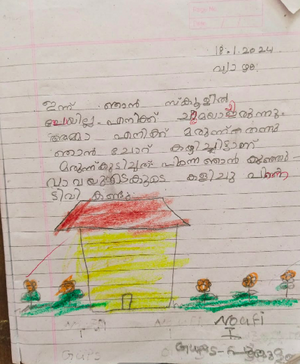 18.1.2024
വ്യാഴം
ഇന്ന് ഞാൻ സ്കൂളിൽ
പോയില്ല. എനിക്ക് ചുമയായിരുന്നു.
അമ്മ എനിക്ക് മരുന്ന് തന്നു
ഞാൻ ചോറ് കഴിച്ചിട്ടാണ്
മരുന്ന് കുടിച്ചത് പിന്നെ ഞാൻ കുഞ്ഞു
വാവയുടെകൂടെ കളിച്ചു പിന്നെ
ടിവി കണ്ടു
Noufi
I